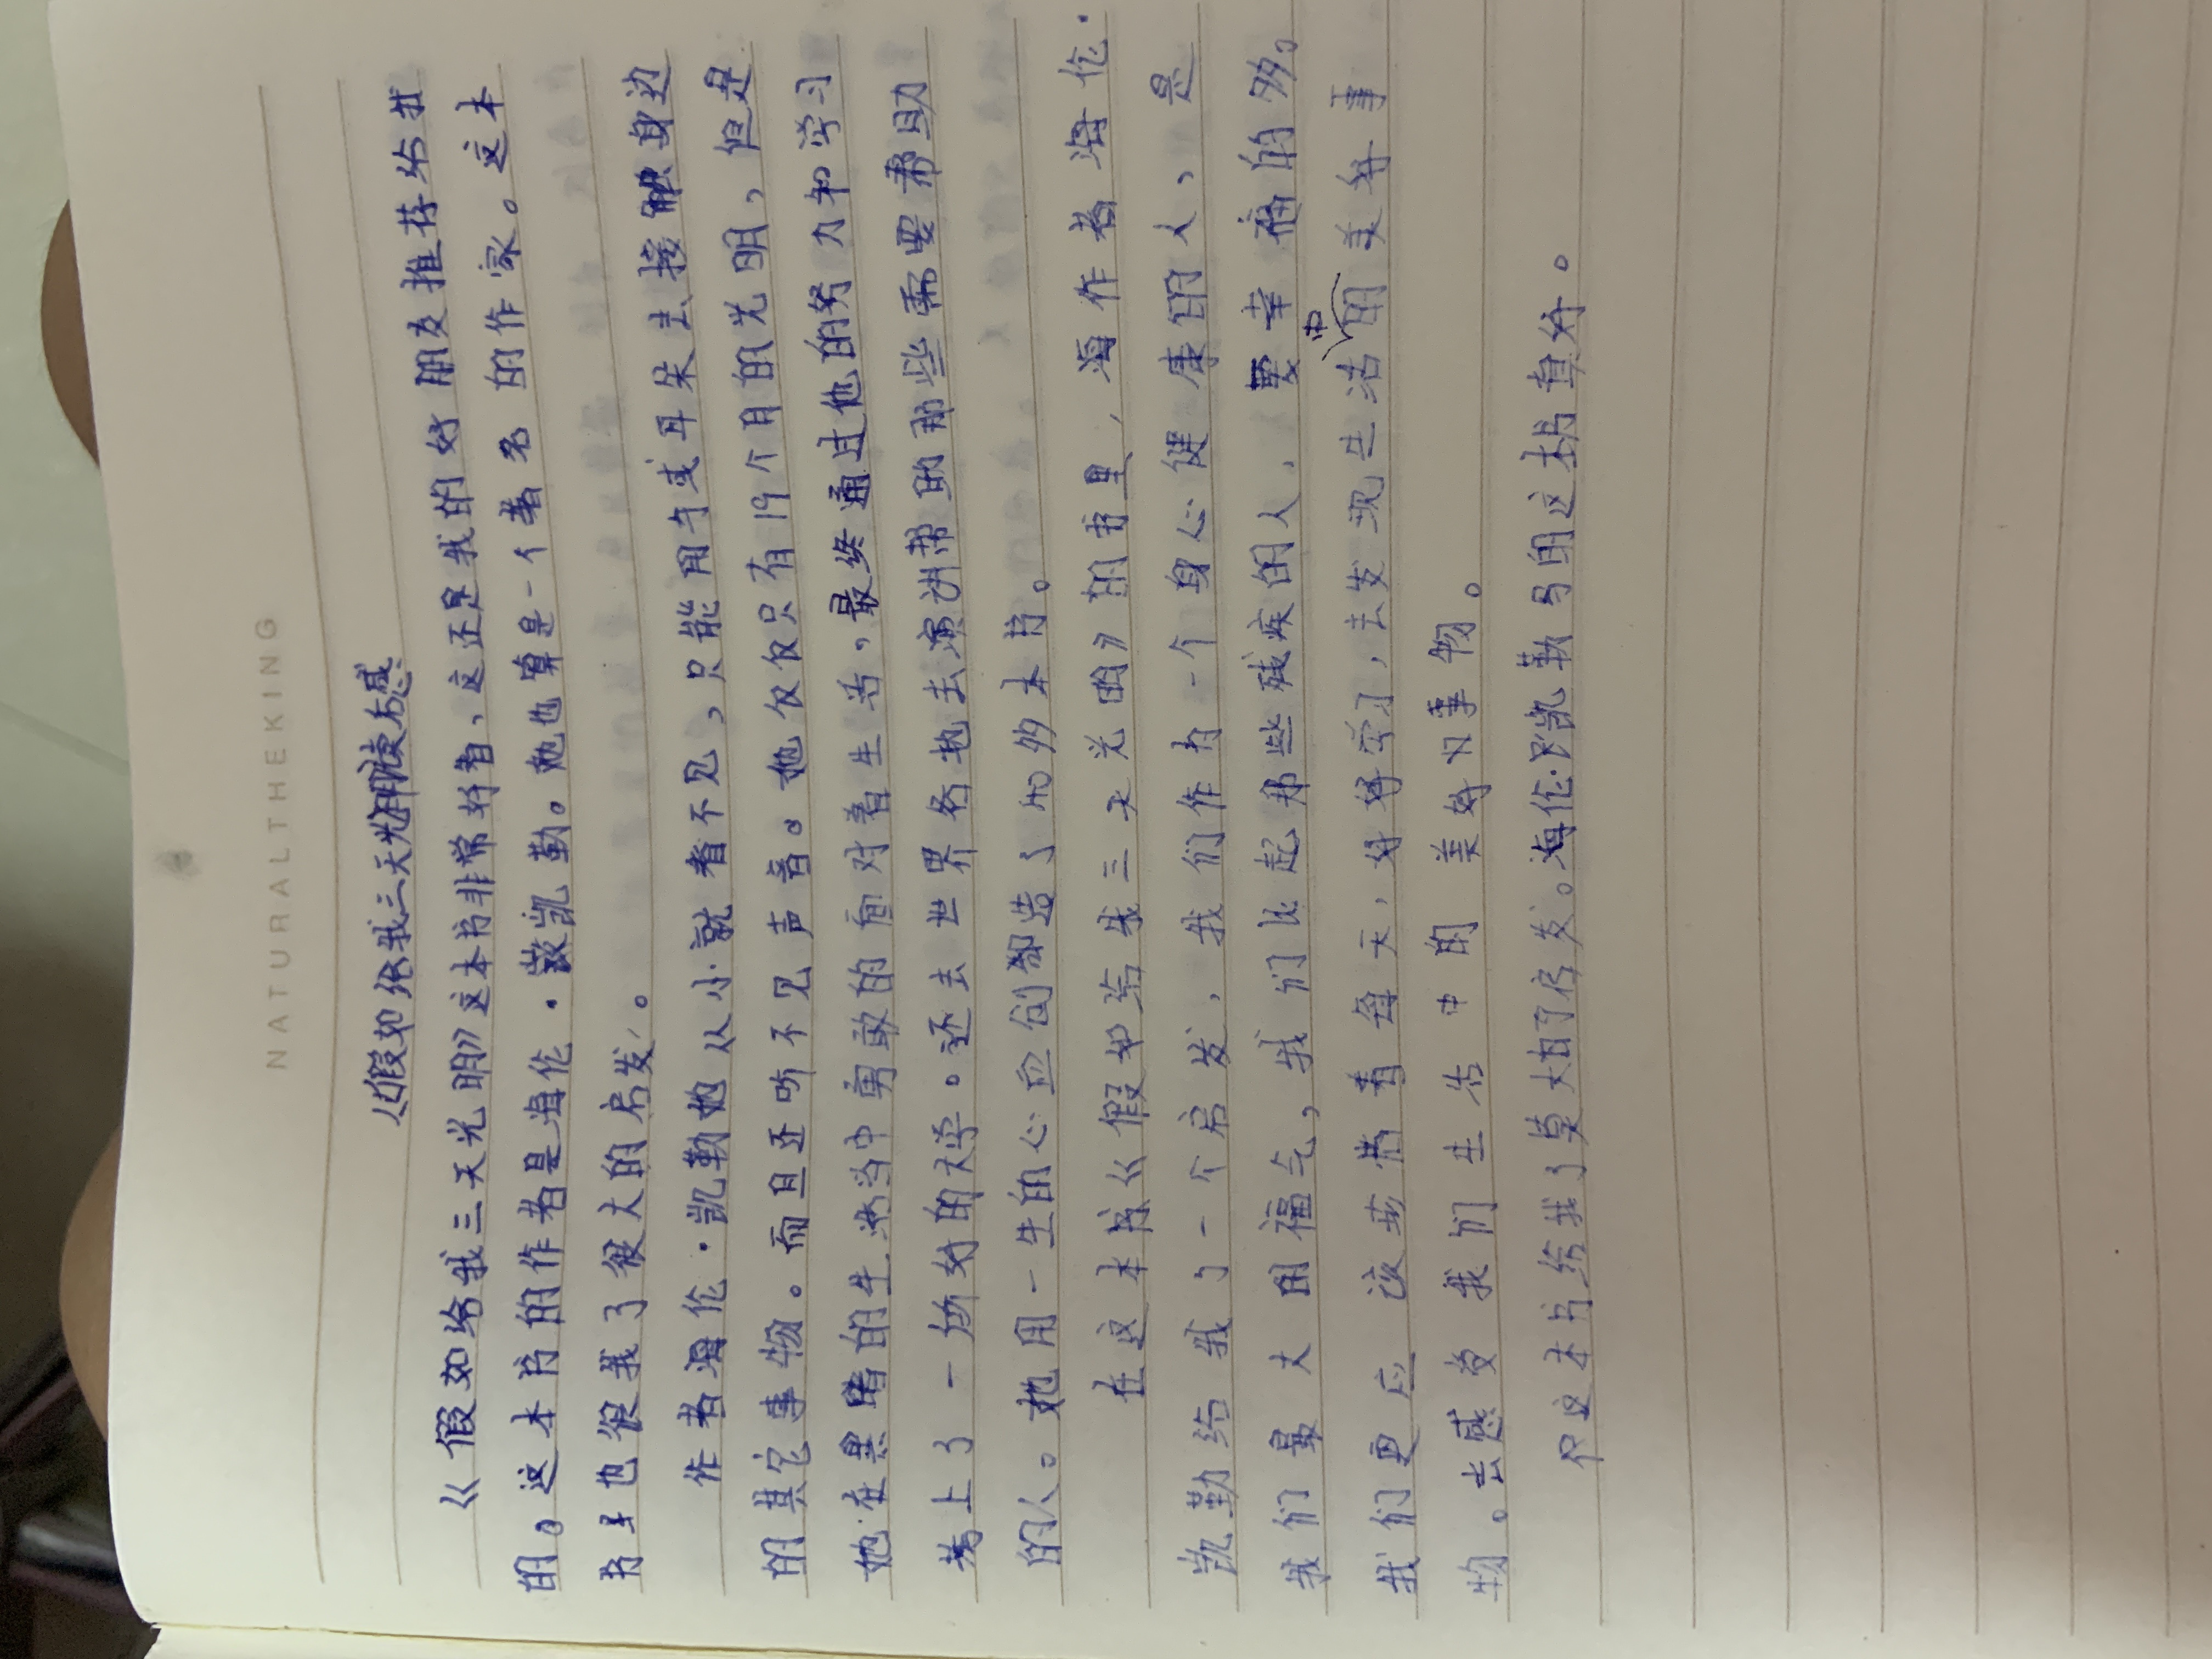 NATURALTHEKING
《假如给我三天光明》读后感
《假如给我三天光明》这本书非常好看，这还是我的好朋友推荐给我
的。这本书的作者是海伦·凯勒。她也算是一个著名的作家。这本
书也很我了很大的启发。
作者海伦·凯勒她从小就看不见，只能用勺或耳朵去接触身边
的其它事物。而且还听不见声音。她仅仅只有19个月的光明，但是
她在黑暗的生活当中勇敢的面对着生活，最终通过他的努力和学习
考上了一所好的大学。还去世界各地去演讲帮助那些需要帮助
的人。她用一生的心血创造了14多本书。
在这本书《假如给我三天光明》的书里，海作者海伦·
凯勒给我了一个启发，我们作为一个身心健康的人，是
我们最大的福气，我们比起那些残疾的人，要幸福的多。
我们更应该带着每天，好好学习，去发现生活中的美好事
物。去感受我们生活中的美好事物。
这本书给我了莫大的启发。海伦·凯勒写的这本书真好。